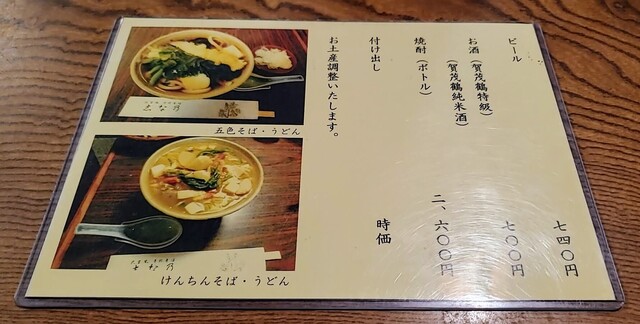 ビール 七四〇円
お酒（賀茂鶴特級） 七〇〇円
（賀茂鶴純米酒）
焼酎（ボトル） 二、六〇〇円
付け出し 時価
お土産調整いたします。
五色そば・うどん
けんちんそば・うどん